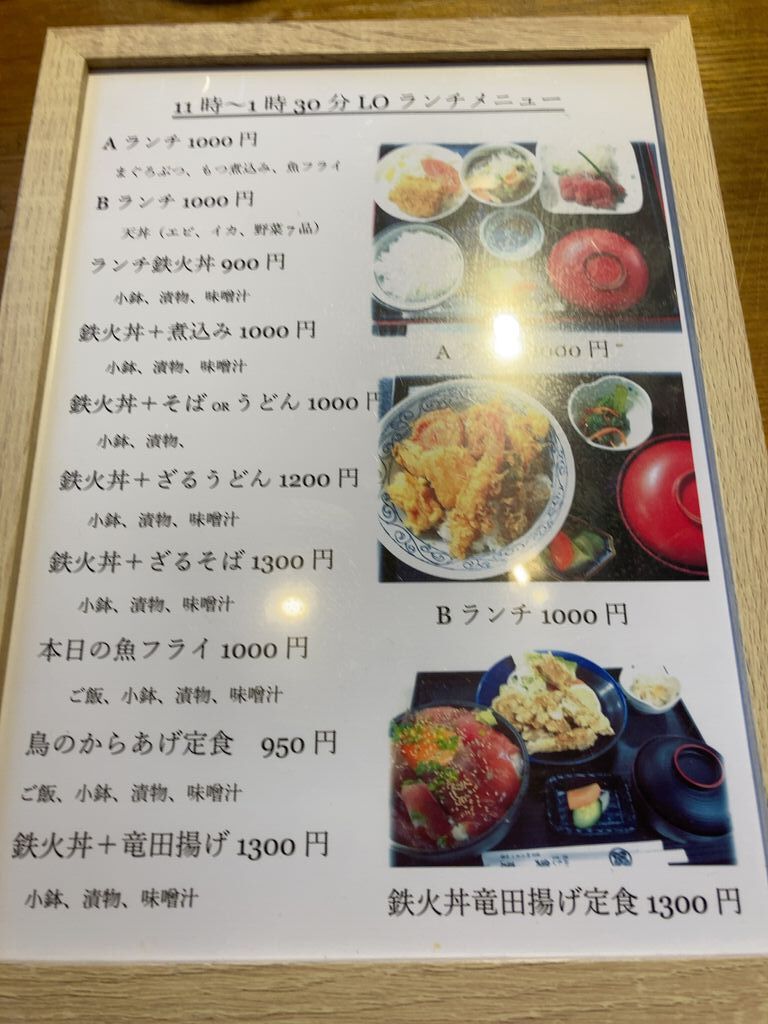 11時～1時30分LOランチメニュー
Aランチ1000円
まぐろぶつ、もつ煮込み、魚フライ
Bランチ1000円
天丼（エビ、イカ、野菜7品）
ランチ鉄火丼900円
小鉢、漬物、味噌汁
鉄火丼＋煮込み1000円
小鉢、漬物、味噌汁
鉄火丼＋そばORうどん1000円
小鉢、漬物、
鉄火丼＋ざるうどん1200円
小鉢、漬物、味噌汁
鉄火丼＋ざるそば1300円
小鉢、漬物、味噌汁
本日の魚フライ1000円
ご飯、小鉢、漬物、味噌汁
鳥のからあげ定食　950円
ご飯、小鉢、漬物、味噌汁
鉄火丼＋竜田揚げ1300円
小鉢、漬物、味噌汁
A 000円
Bランチ1000円
鉄火丼竜田揚げ定食1300円